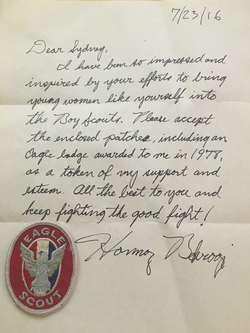 7/23/16
Dear Sydney,
I have been so impressed and
inspired by your efforts to bring
young women like yourself into
the Boy Scouts. Please accept
the enclosed patches, including an
Eagle badge awarded to me in 1978,
as a token of my support and
esteem. All the best to you and
keep fighting the good fight!
EAGLE
SCOUT